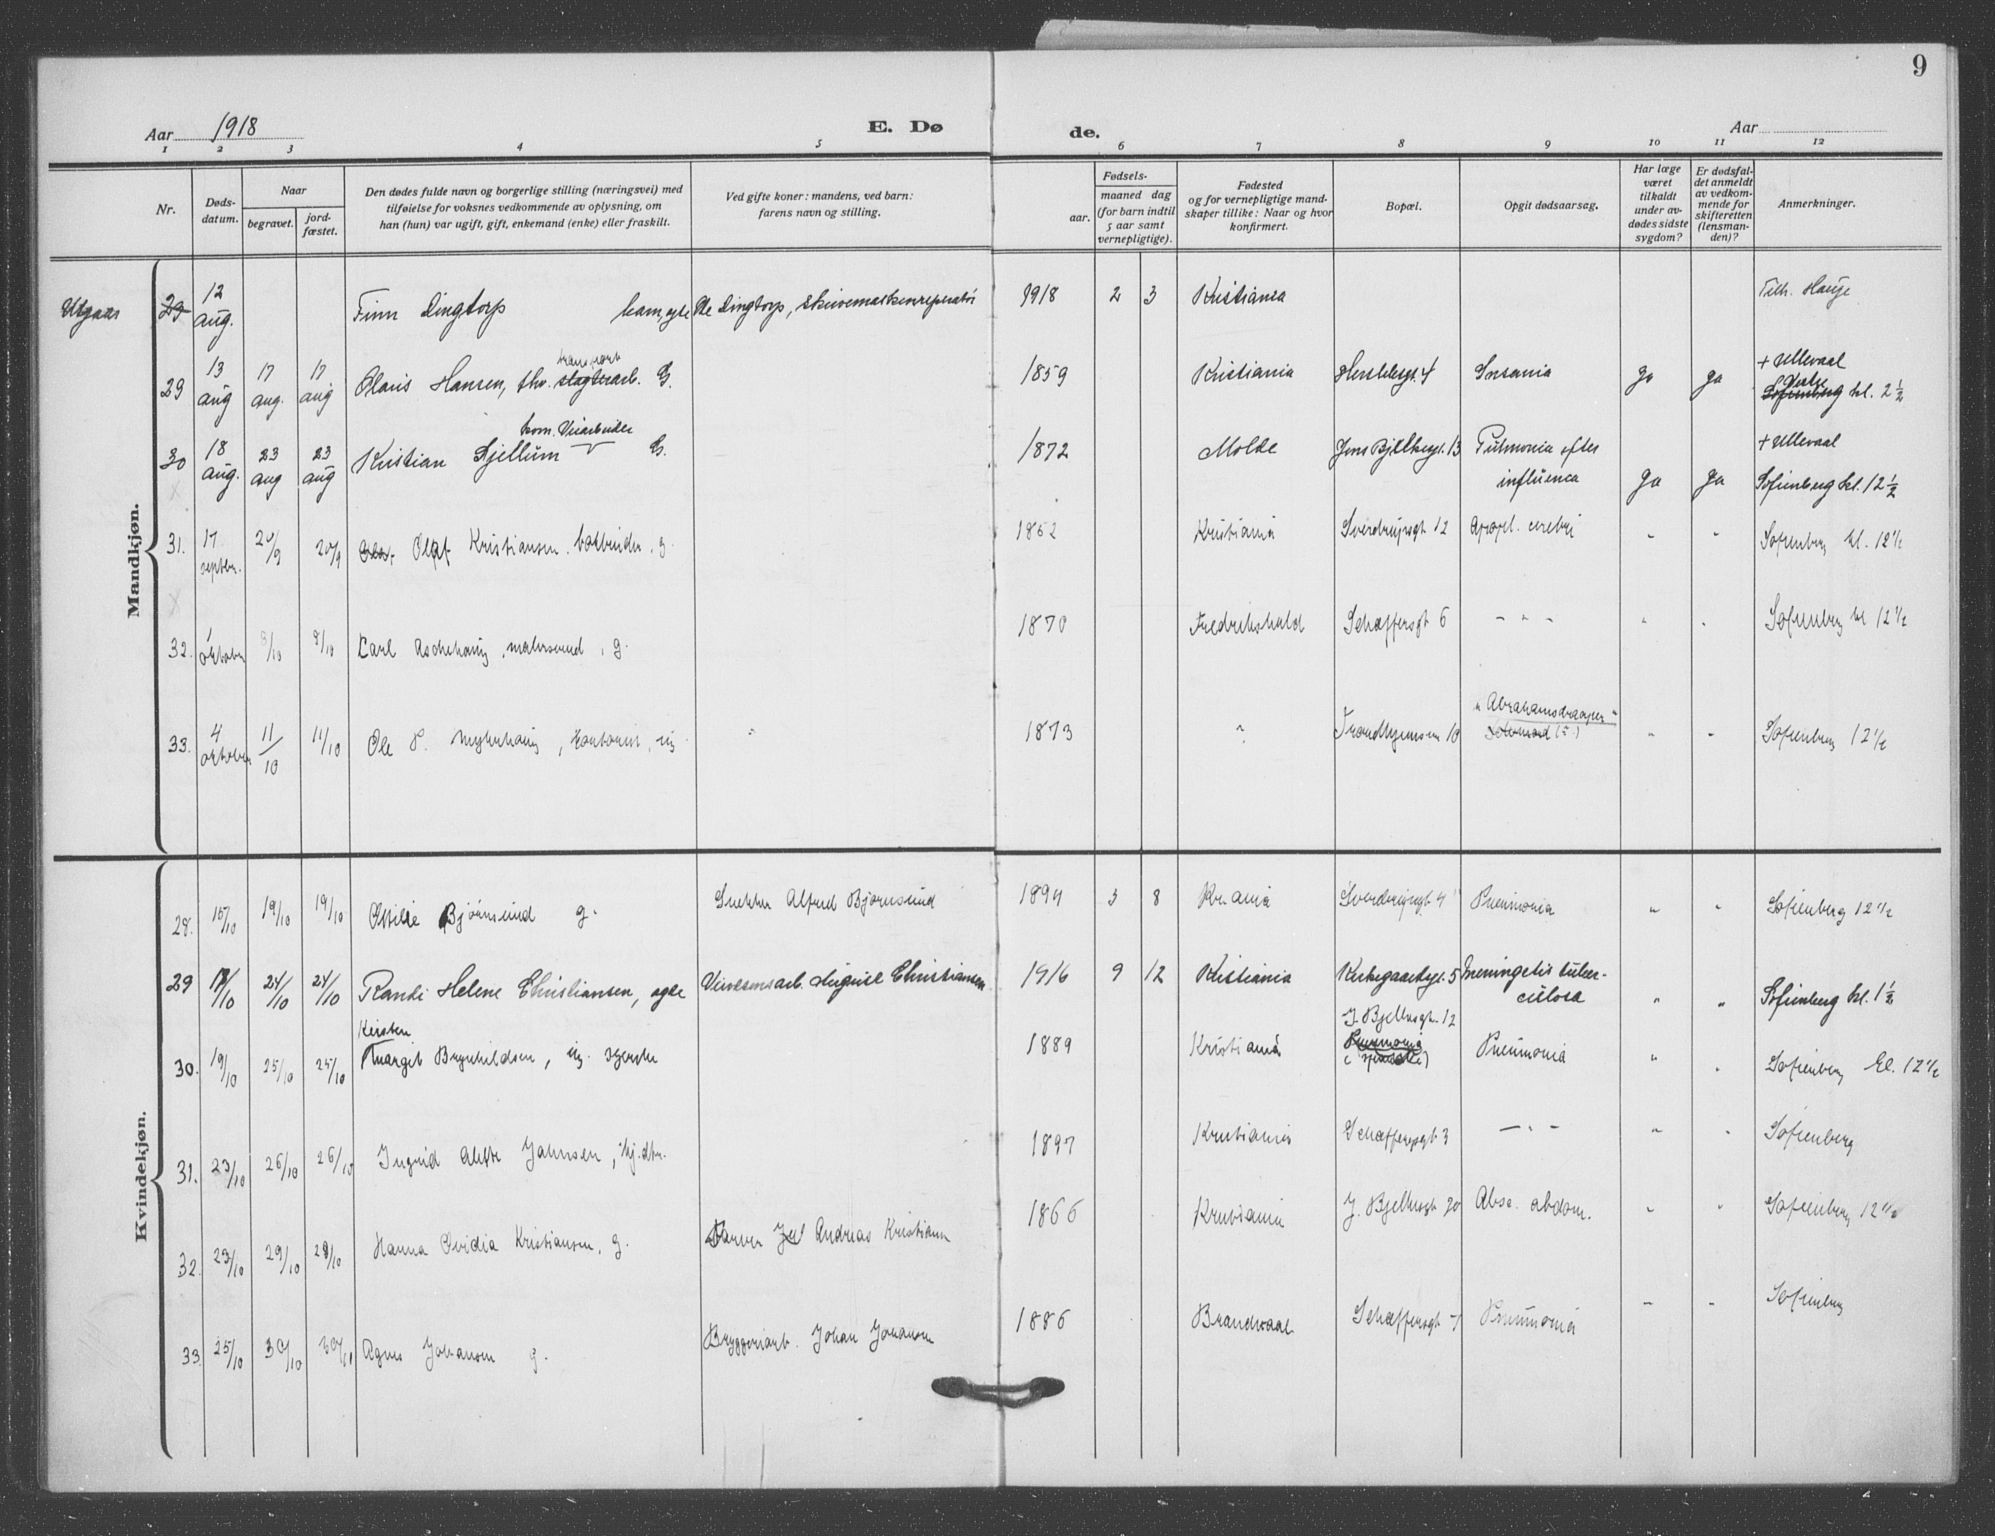 9
Aar 1918 E. Dø de. Aar
1 2 3 4 5 6 7 8 9 10 11 12
Nr.
Døds-
datum.
Naar
begravet.
jord-
fæstet.
Den dødes fulde navn og borgerlige stilling (næringsvei) med
tilføielse for voksnes vedkommende av oplysning, om
han (hun) var ugift, gift, enkemand (enke) eller fraskilt.
Ved gifte koner: mandens, ved barn:
farens navn og stilling.
Fødsels-
aar.
maaned dag
(for barn indtil
5 aar samt
vernepligtige).
Fødested
og for vernepligtige mand-
skaper tillike: Naar og hvor
konfirmert.
Bopæl.
Opgit dødsaarsag.
Har læge
været
tilkaldt
under av-
dødes sidste
sygdom?
Er dødsfal-
det anmeldt
av vedkom-
mende for
skifteretten
(lensman-
den)?
Anmerkninger.
Mandkjøn.
Utgaar 29 12 aug. Finn barn, egte 1918 2 3 Kristiania Tilh. Hauge
29 13 aug 17 aug. 17 aug Olaris Hansen, fhv. transport slagterarb. G. 1859 Kristiania 4 ja ja + Ullevaal
Vestre Sofienberg kl. 2 1/2
kom. Veiarbeider
30 18 aug. 23 aug 23 aug Kristian G. 1872 Molde Jens Bjelkesgt. 13 efter influenca ja ja + Ullevaal
Sofienberg kl. 12 1/2
31. 17 septbr. 20/9 20/9 Olaf Kristiansen, g. Kristiania Sverdrupsgt 12 Apopl. cerebri " " Sofienberg kl. 12 1/2
32. 1 oktober 8/10 8/10 Carl Aschehaug, g. 1870 Fredrikshald Schæffersgt 6 - " - " " Sofienberg kl 12 1/2
33. 4 oktober 11/10 11/10 Ole P. , kontorist, ug " 1873 " Trondhjemsvn 10 " " Sofienberg 12 1/2
Kvindekjøn.
28. 15/10 19/10 19/10 Ottilie Bjørnsund g. Snekker Alfred Bjørnsund 1894 3 8 Kr.ania Sverdrupsgt 4 Pneumonia " " Sofienberg 12 1/2
29 18/10 24/10 24/10 Randi Helene Christiansen, egte August Christiansen 1916 9 12 Kristiania Kirkegaardsgt. 5 meningetis tuber-
culosa " " Sofienberg kl. 1 1/2
Kirsten
30. 19/10 25/10 25/10 Margit Brynhildsen, ug. syerske 1889 Kristiania J. Bjelkesgt. 12 Pneumonia " " Sofienberg kl. 12 1/2
31. 23/10 26/10 26/10 Ingrid Johnsen, 1897 Kristiania Schæffersgt 3 - " - " " Sofienberg
32. 23/10 29/10 29/10 Hanna Ovidia Kristiansen, g. Andreas Kristiansen 1866 Kristiania J. Bjelkesgt 20 Absc. abdom. " " Sofienberg 12 1/2
33. 25/10 30/10 Agnes Johansen g. Bryggeriarb. Johan Johansen 1886 Brandvaal Schæffersgt 7 Pneumonia " " Sofienberg